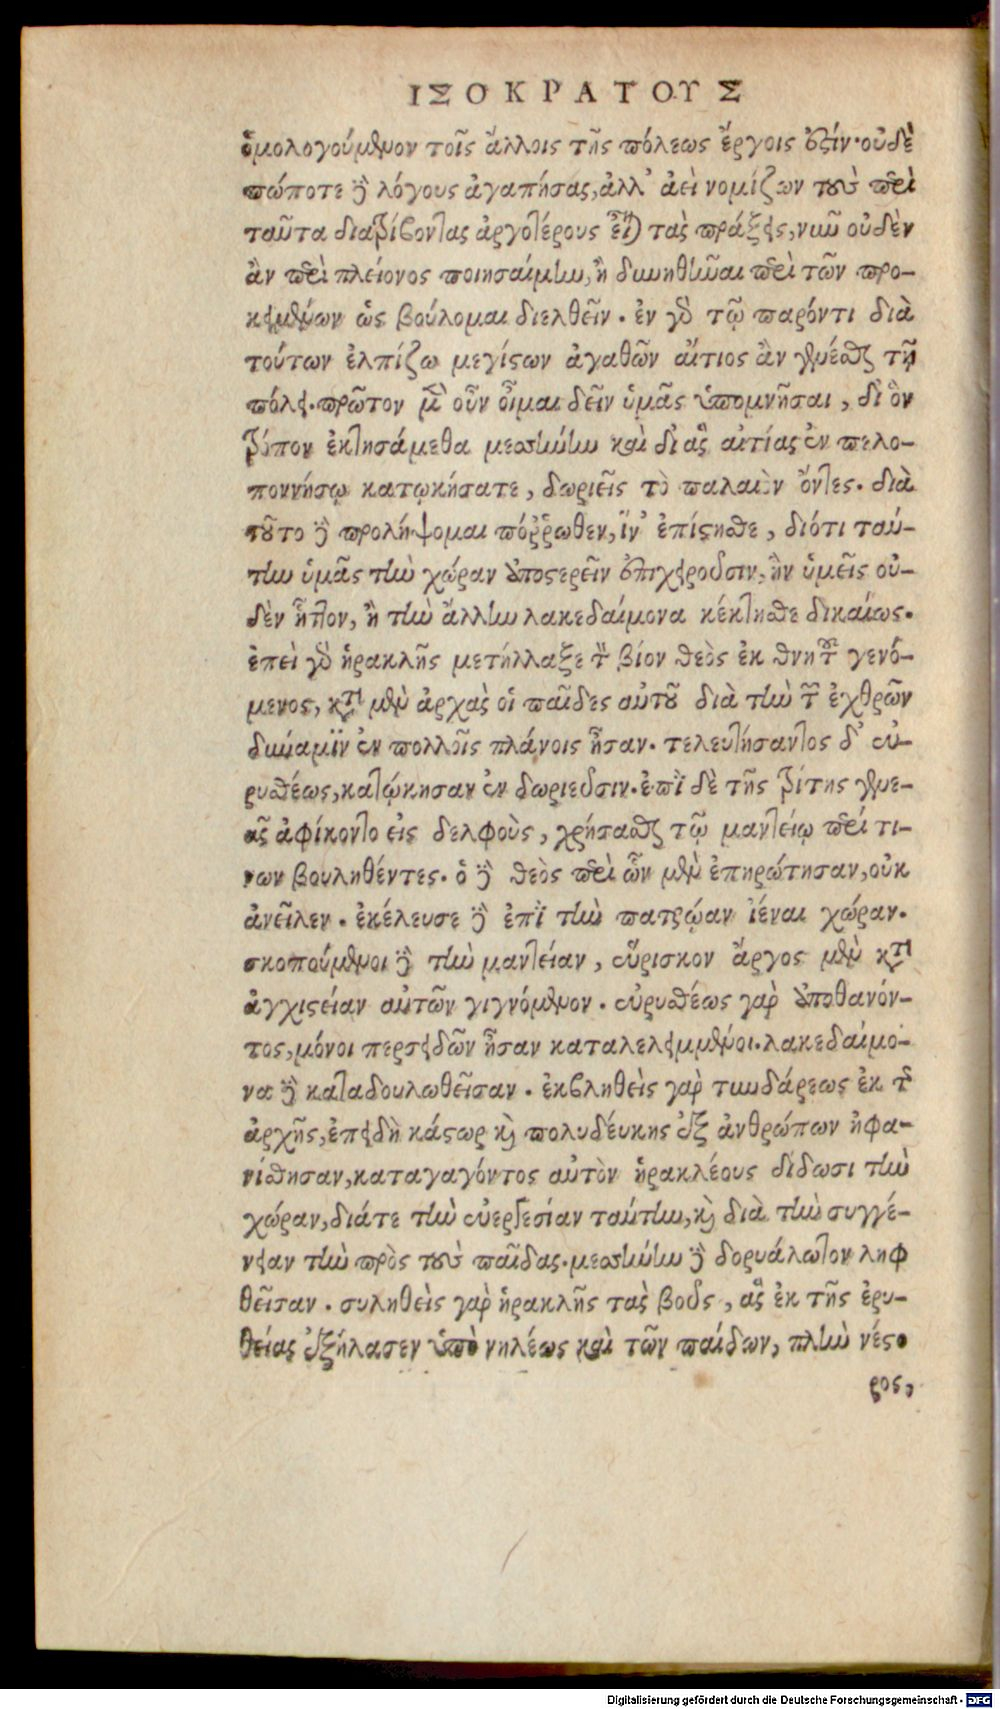 ΙΣΟΚΡΑΤΟΥΣ
ὁμολογούμενον τοῖς ἄλλοις τῆς πόλεως ἔργοις ἐστίν· οὐδὲ
πώποτε δὲ λόγους ἀγαπήσας, ἀλλ' ἀεὶ νομίζων τοὺς περὶ
ταῦτα διατρίβοντας ἀργοτέρους εἶναι τὰς πράξεις, νῦν οὐδὲν
ἂν περὶ πλείονος ποιησαίμην, ἢ δυνηθῆναι περὶ τῶν προ-
κειμένων ὡς βούλομαι διελθεῖν. ἐν γὰρ τῷ παρόντι διὰ
τούτων ἐλπίζω μεγίστων ἀγαθῶν αἴτιος ἂν γενέσθαι τῇ
πόλει. πρῶτον μὲν οὖν οἶμαι δεῖν ὑμᾶς ὑπομνῆσαι, δι' ὃν
τρόπον ἐκτησάμεθα μεσσήνην καὶ δι' ἃς αἰτίας ἐν πελο-
ποννήσῳ κατῳκήσατε, δωριεῖς τὸ παλαιὸν ὄντες. διὰ
τοῦτο δὲ προλήψομαι πόῤῥωθεν, ἵν' ἐπίστησθε, διότι ταύ-
την ὑμᾶς τὴν χώραν ἀποστερεῖν ἐπιχειροῦσιν, ἣν ὑμεῖς οὐ-
δὲν ἧττον, ἢ τὴν ἄλλην λακεδαίμονα κέκτησθε δικαίως.
ἐπεὶ γὰρ ἡρακλῆς μετήλλαξε τὸν βίον θεὸς ἐκ θνητοῦ γενό-
μενος, κατὰ μὲν ἀρχὰς οἱ παῖδες αὐτοῦ διὰ τὴν τῶν ἐχθρῶν
δύναμϊν ἐν πολλοῖς πλάνοις ἦσαν. τελευτήσαντος δ' εὐ-
ρυσθέως, κατῴκησαν ἐν δωριεῦσιν. ἐπῒ δὲ τῆς τρίτης γενε-
ᾶς ἀφίκοντο εἰς δελφοὺς, χρήσασθαι τῷ μαντείῳ περί τι-
νων βουληθέντες. ὁ δὲ θεὸς περὶ ὧν μὲν ἐπηρώτησαν, οὐκ
ἀνεῖλεν. ἐκέλευσε δὲ ἐπῒ τὴν πατρῴαν ἰέναι χώραν.
σκοπούμενοι δὲ τὴν μαντείαν, εὕρισκον ἄργος μὲν κατ'
ἀγχιστείαν αὐτῶν γιγνόμενον. εὐρυσθέως γὰρ ἀποθανόν-
τος, μόνοι περσειδῶν ἦσαν καταλελειμμένοι. λακεδαίμο-
να δὲ καταδουλωθεῖσαν. ἐκβληθεὶς γὰρ τυνδάρεως ἐκ τῆς
ἀρχῆς, ἐπειδὴ κάστωρ καὶ πολυδεύκης ἐξ ἀνθρώπων ἠφα-
νίσθησαν, καταγαγόντος αὐτὸν ἡρακλέους δίδωσι τὴν
χώραν, διάτε τὴν εὐεργεσίαν ταύτην, καὶ διὰ τὴν συγγέ-
νειαν τὴν πρὸς τοὺς παῖδας. μεσσήνην δὲ δορυάλωτον ληφ
θεῖσαν. συληθεὶς γὰρ ἡρακλῆς τὰς βοῦς, ἃς ἐκ τῆς ἐρυ-
θείας ἐξήλασεν ὑπὸ νηλέως καὶ τῶν παίδων, πλὴν νέσ-
ρος,
Digitalisierung gefördert durch die Deutsche Forschungsgemeinschaft - DFG